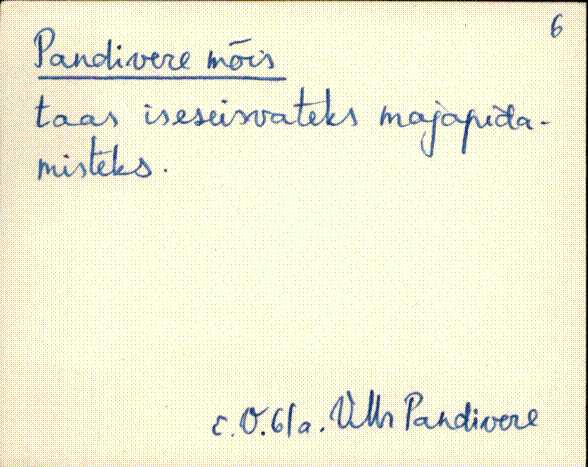 6
Pandivere mõis
taas iseseisvateks majapida-
misteks.
Pandivere